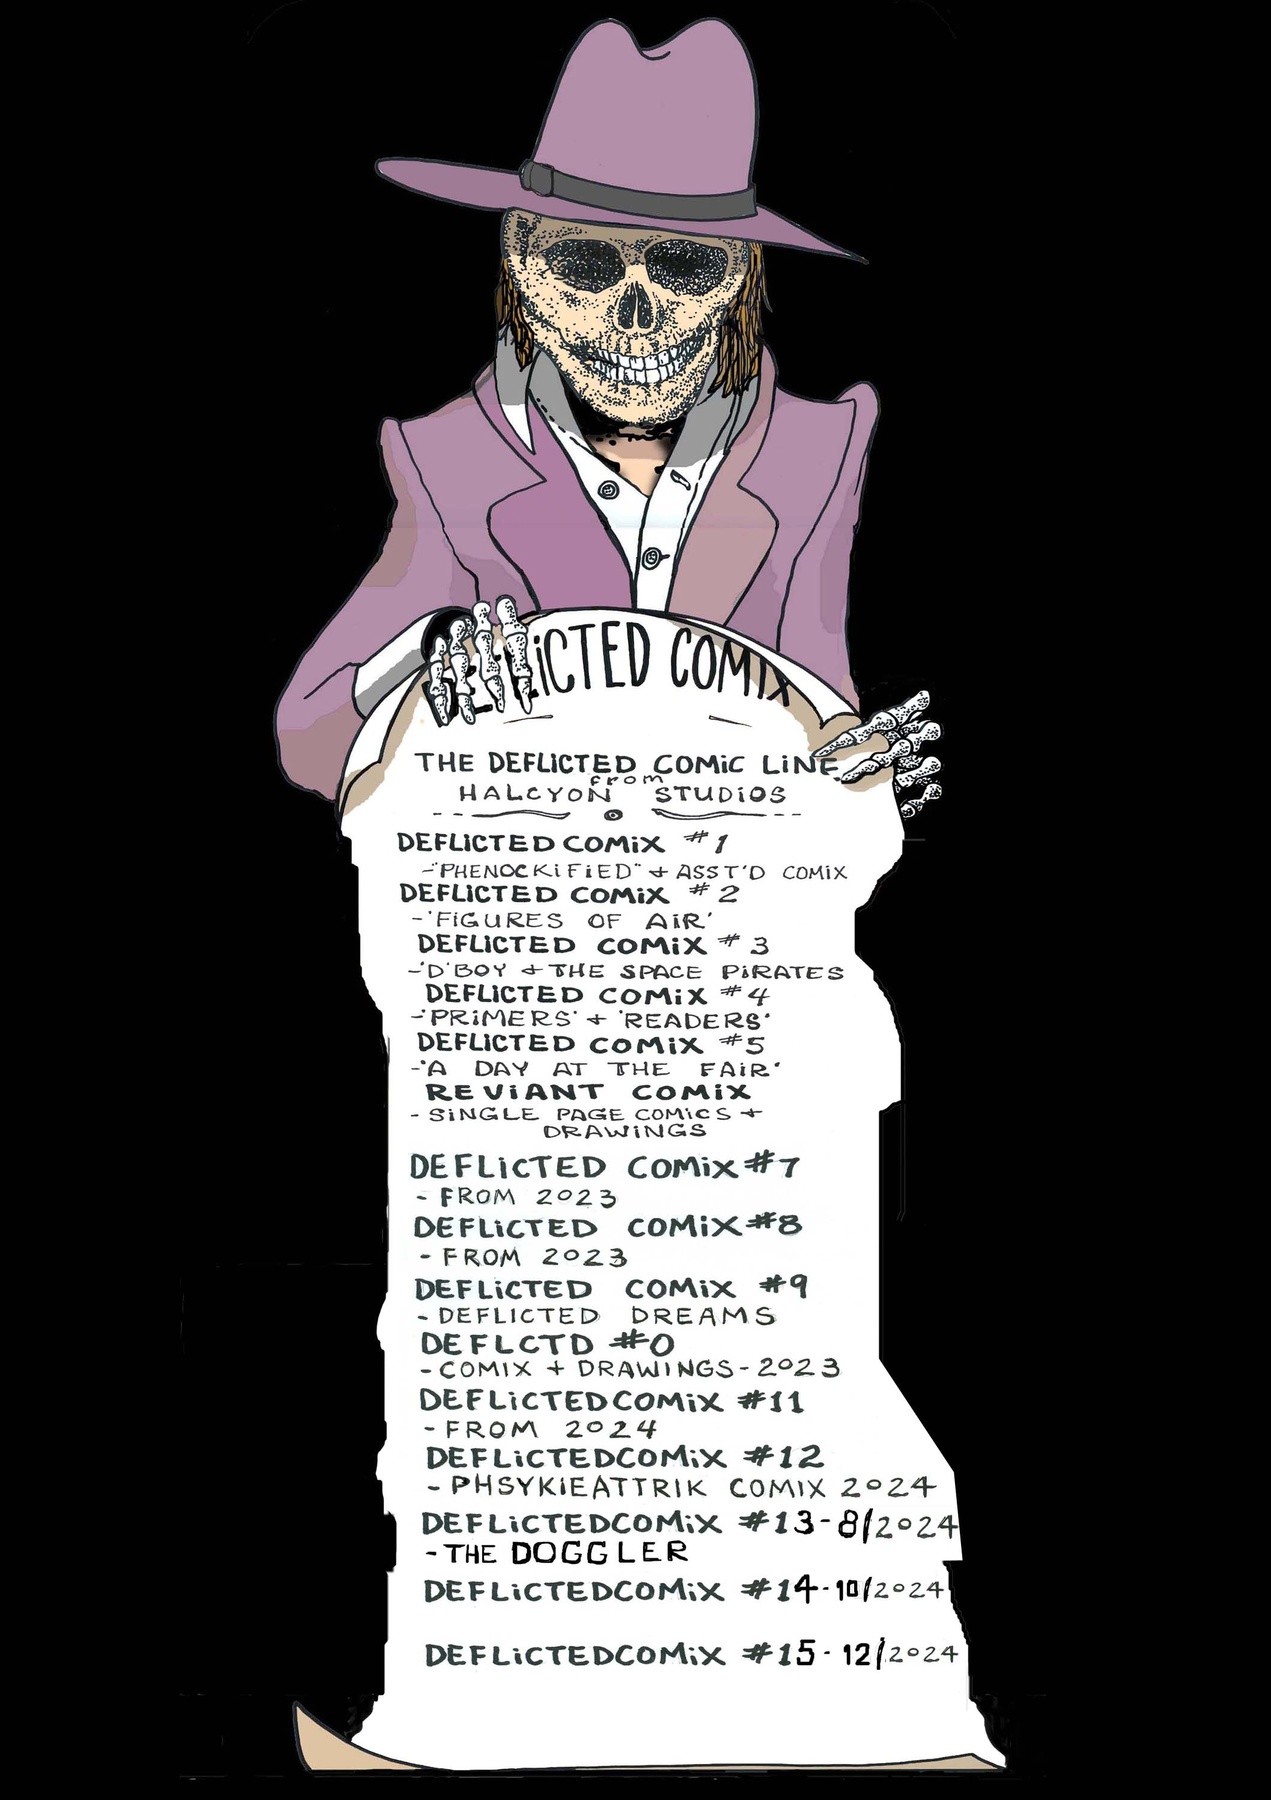 DEFLiCTED COMIX
THE DEFLICTED COMiC LiNE
from
HALCYON STUDiOS
DEFLICTED COMiX #1
-"PHENOCKiFiED" + ASST'D COMIX
DEFLICTED COMiX #2
-'FiGURES OF AiR'
DEFLICTED COMiX #3
-'D'BOY + THE SPACE PiRATES
DEFLICTED COMiX #4
-'PRiMERS' + 'READERS'
DEFLICTED COMiX #5
-'A DAY AT THE FAiR'
REViANT COMiX
- SiNGLE PAGE COMiCS +
DRAWiNGS
DEFLiCTED COMiX #7
- FROM 2023
DEFLiCTED COMiX #8
- FROM 2023
DEFLiCTED COMiX #9
- DEFLICTED DREAMS
DEFLCTD #0
- COMIX + DRAWINGS - 2023
DEFLiCTEDCOMiX #11
- FROM 2024
DEFLiCTEDCOMiX #12
- PHSYKIEATTRIK COMIX 2024
DEFLiCTEDCOMiX #13 - 8/2024
- THE DOGGLER
DEFLiCTEDCOMiX #14 - 10/2024
DEFLiCTEDCOMiX #15 - 12/2024